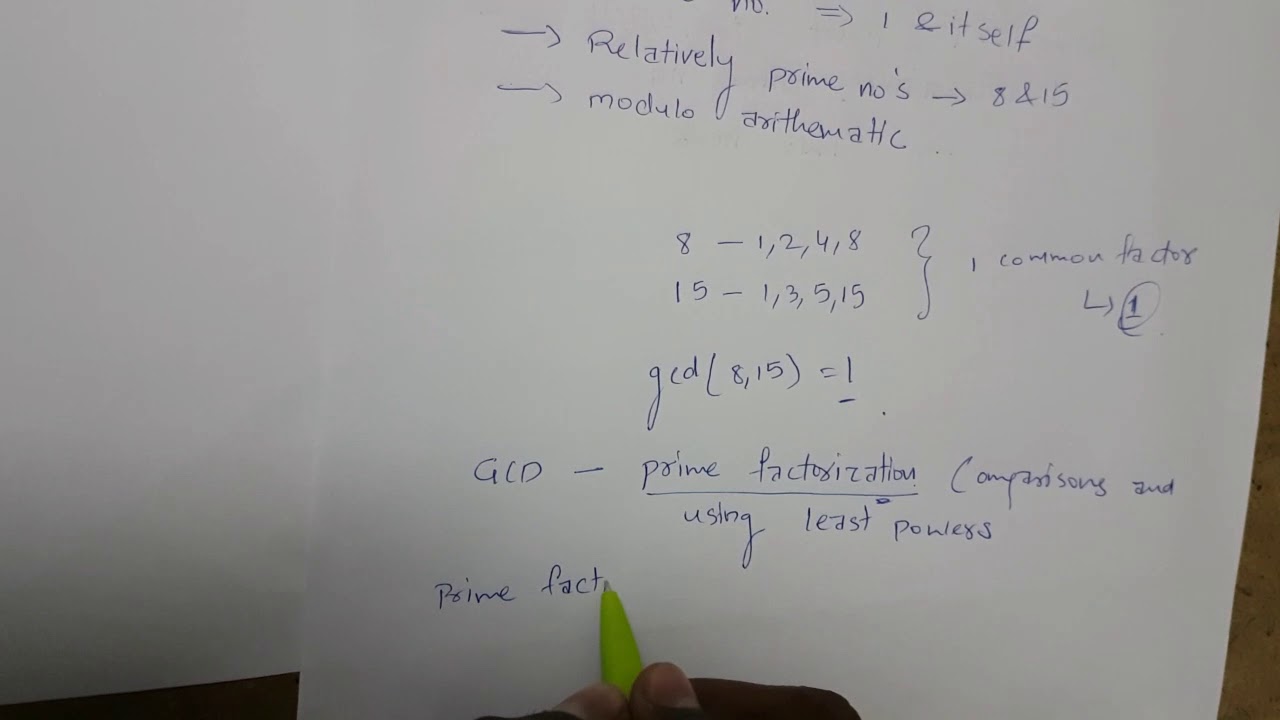 no. ⇒ 1 & itself
→ Relatively prime no's → 8 & 15
→ modulo arithematic
8 – 1, 2, 4, 8
15 – 1, 3, 5, 15 } 1 common factor
↳ 1
gcd(8,15) = 1
GCD – prime factorization Comparisons and
using least powers
Prime fact